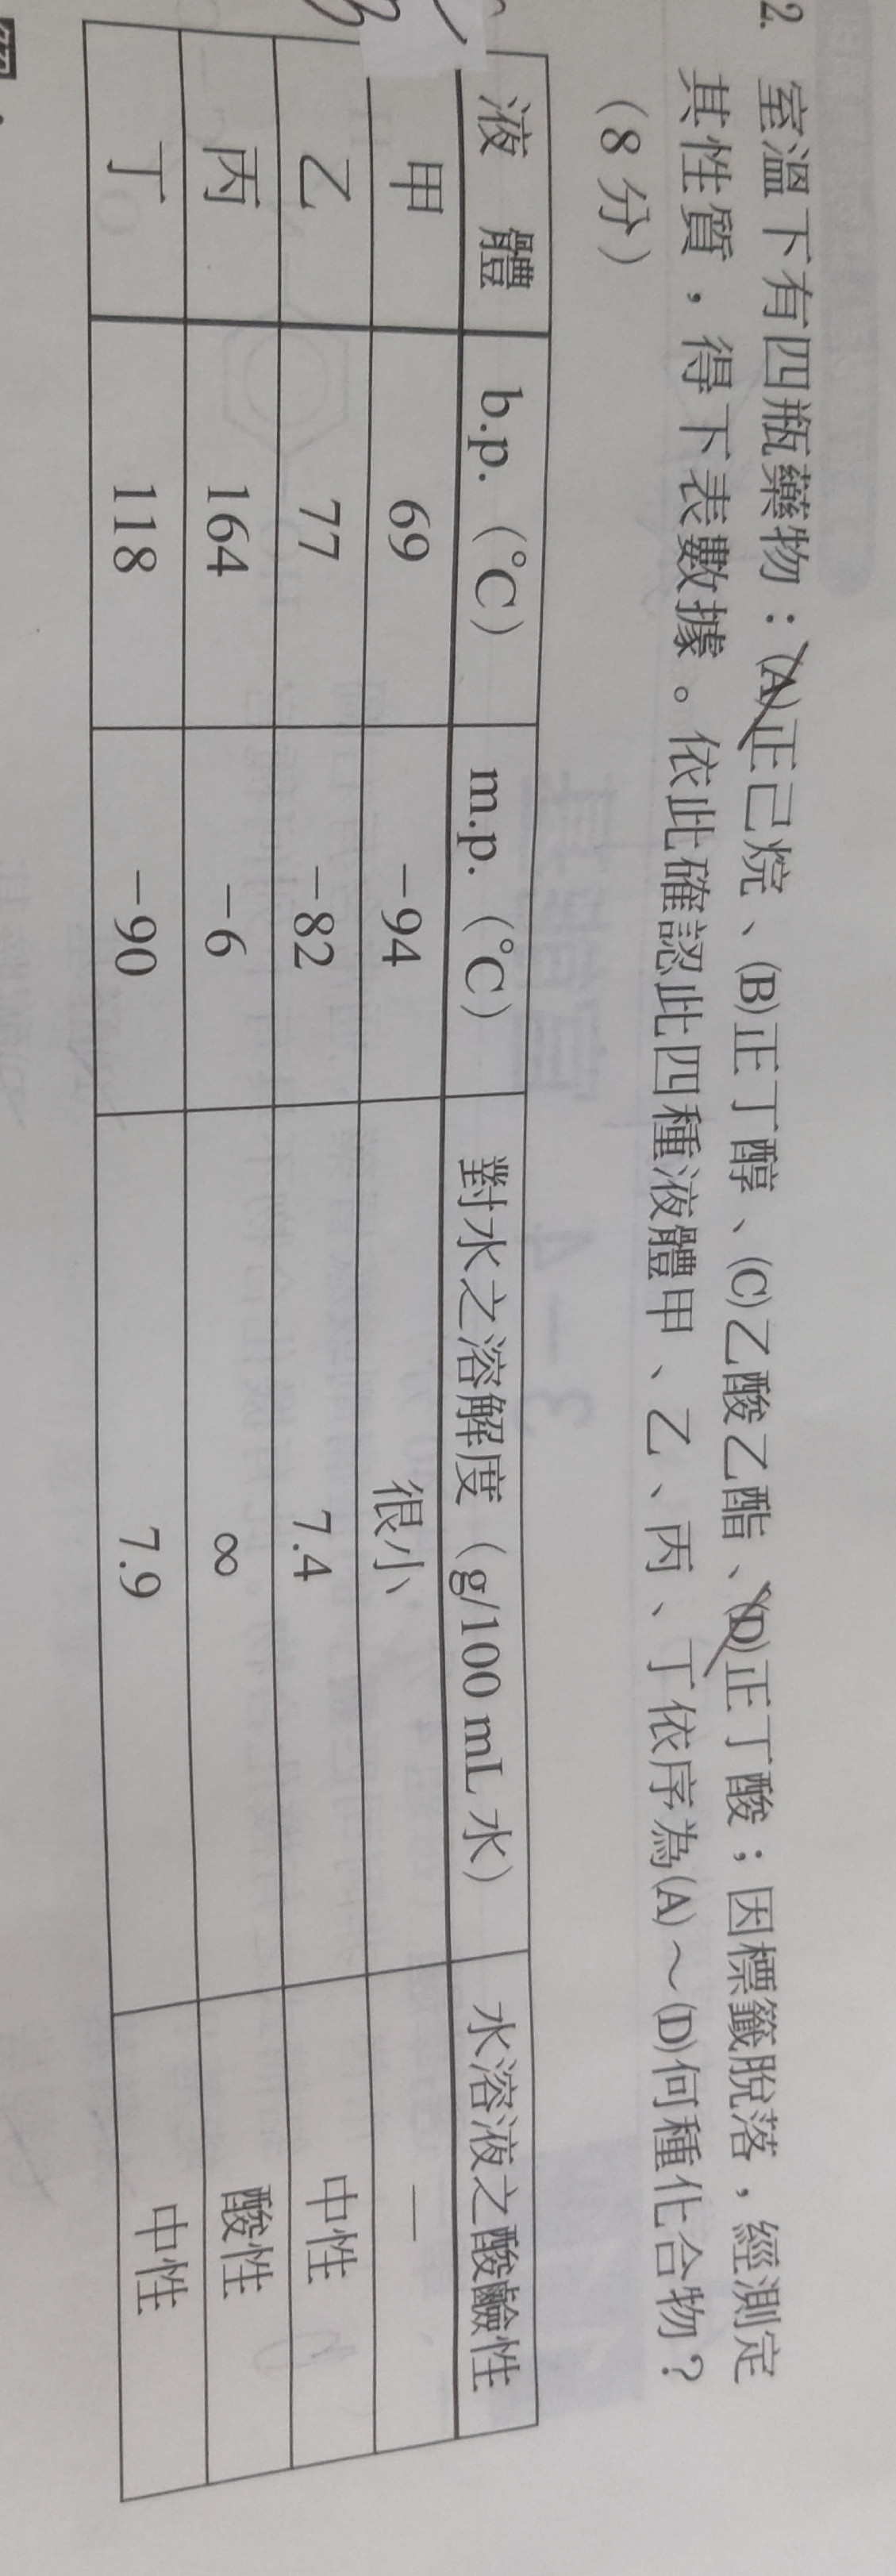 2. 室溫下有四瓶藥物：(A)正己烷、(B)正丁醇、(C)乙酸乙酯、(D)正丁酸；因標籤脫落，經測定
其性質，得下表數據。依此確認此四種液體甲、乙、丙、丁依序為(A)～(D)何種化合物？
（8分）
液體 b.p.（℃） m.p.（℃） 對水之溶解度（g/100 mL水） 水溶液之酸鹼性
甲 69 −94 很小 —
乙 77 −82 7.4 中性
丙 164 −6 ∞ 酸性
丁 118 −90 7.9 中性